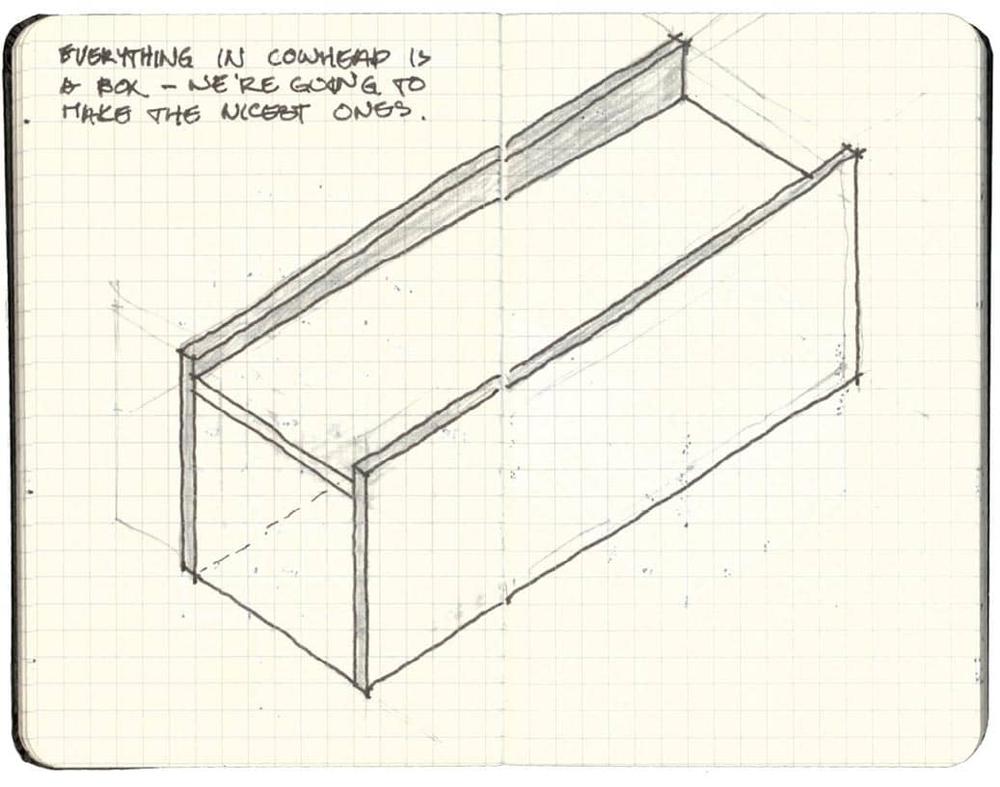 EVERYTHING IN COWHEAD IS
A BOX – WE'RE GOING TO
MAKE THE NICEST ONES.